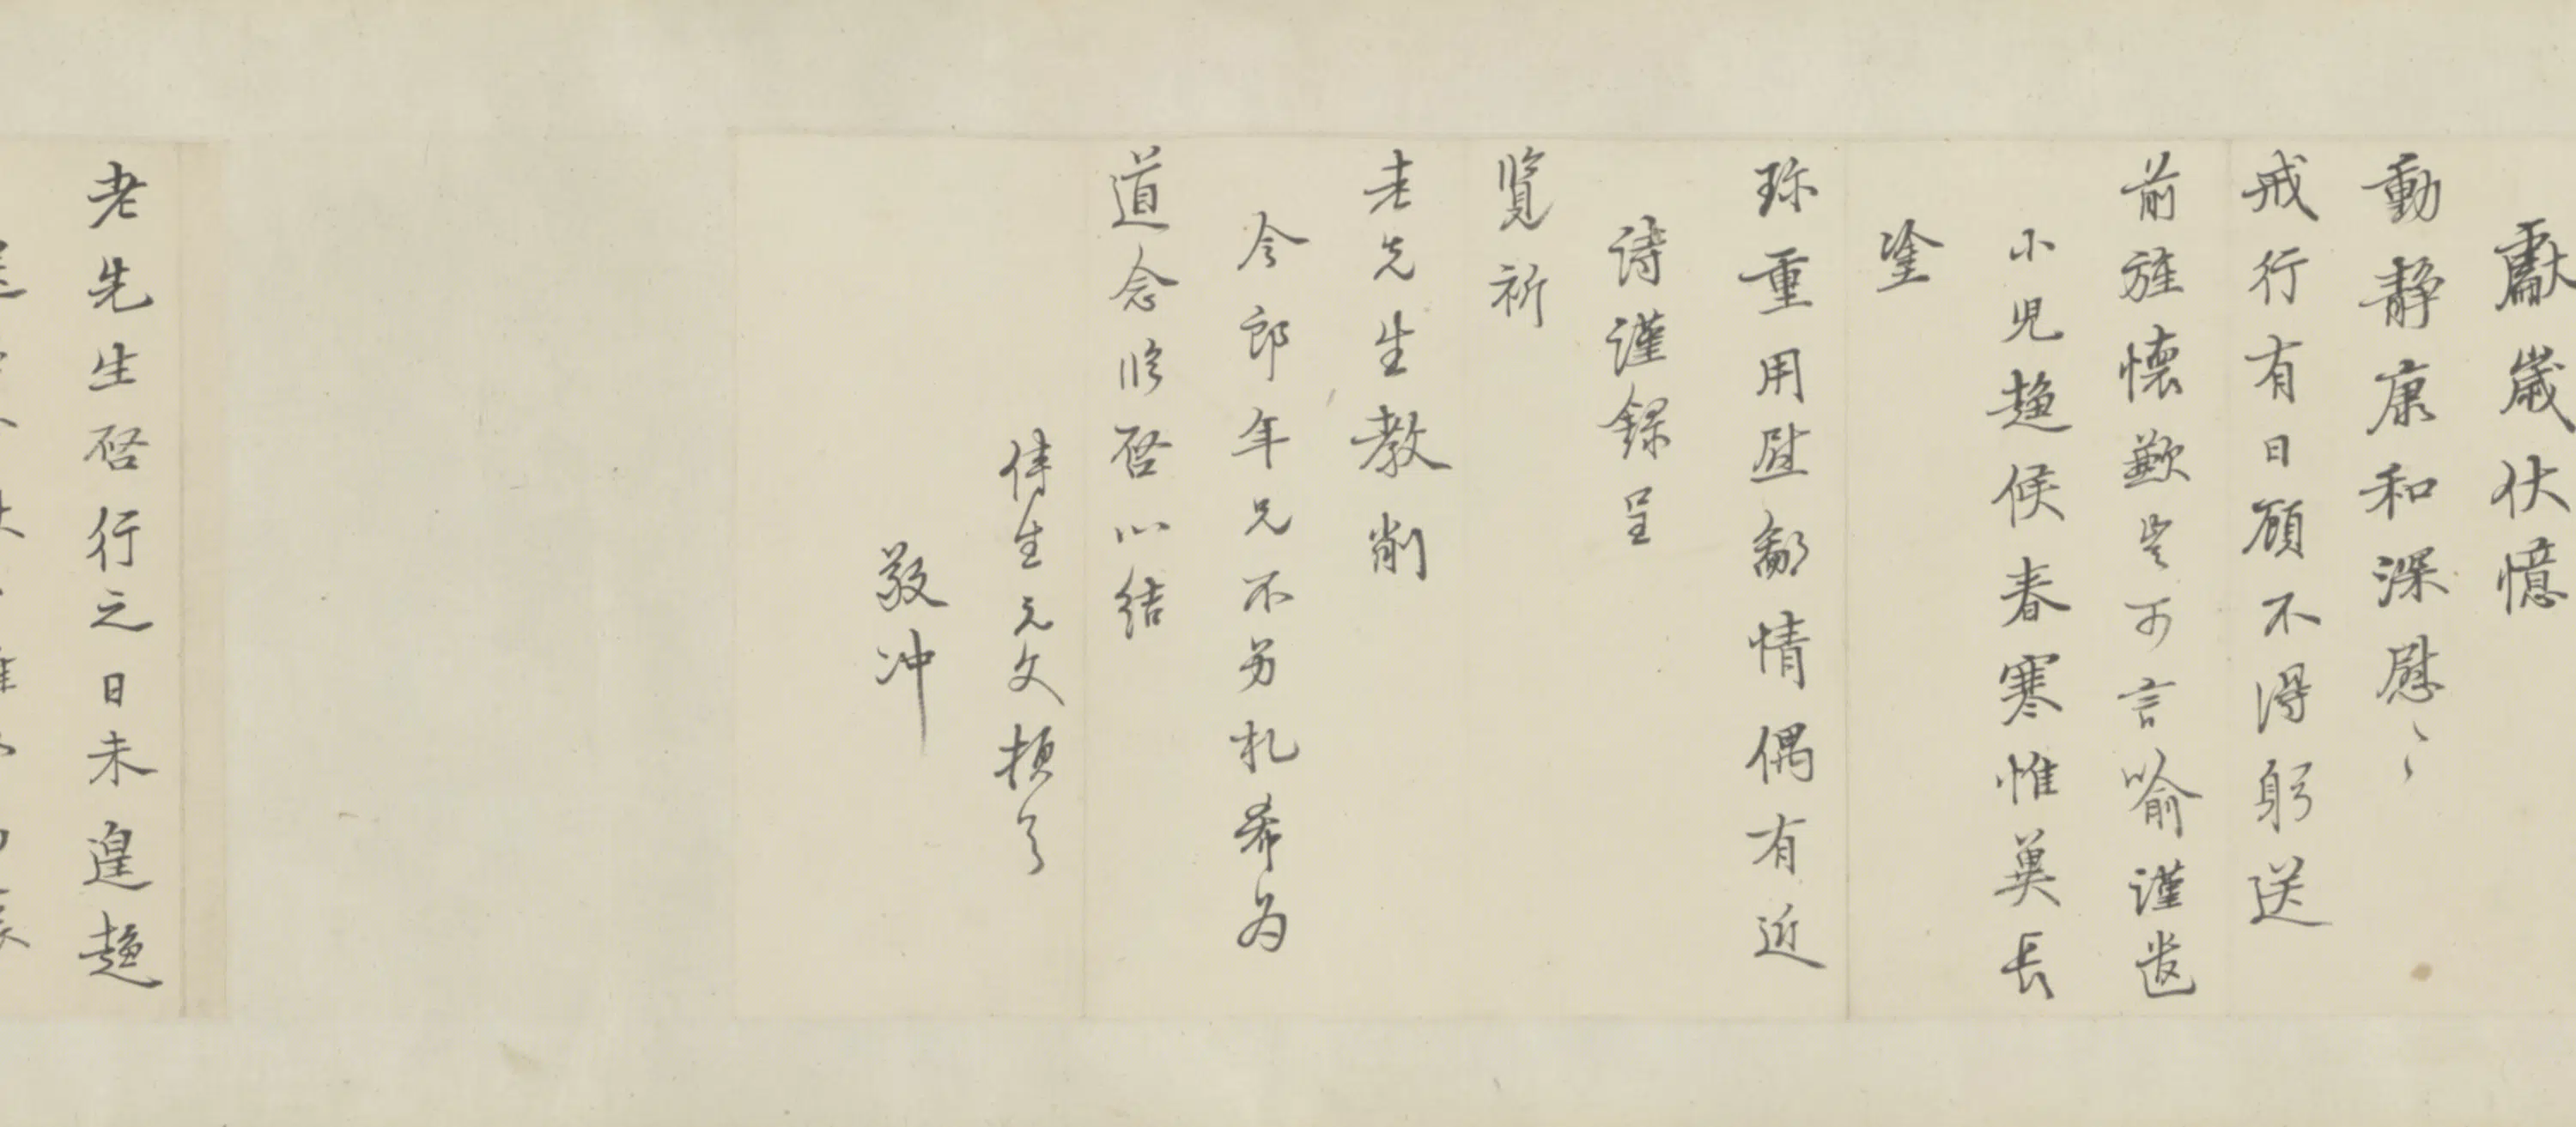 獻歲伏憶
動靜康和深慰〻
戒行有日顧不得躬送
前旌懷歉豈可言喻謹遣
小児趨候春寒惟冀長
塗
珎重用慰鄙情偶有近
詩謹録呈
覧祈
老先生教削
令郎年兄不另札希为
道念临啓心结
侍生元文頓首
敬冲
老先生啓行之日未遑趨